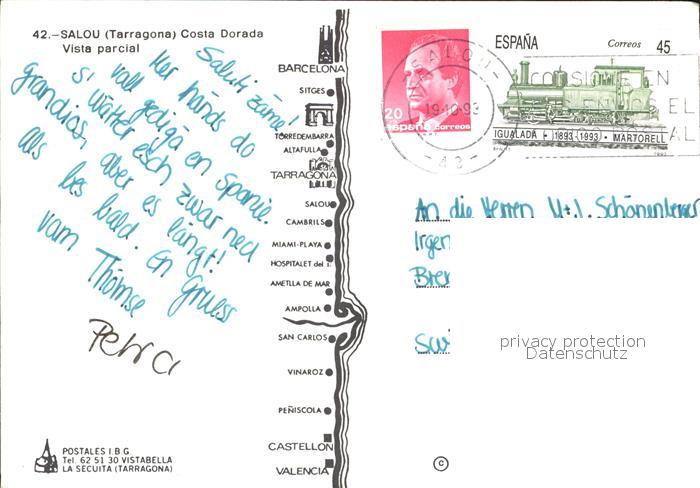 42.–SALOU (Tarragona) Costa Dorada
Vista parcial
Saluti zäme!
Mer händs do
vall gediga en Spanie.
S' Wätter esch zwar ned
grandios, aber es längt!
Als bes bald. En Gruess
vam Thömse
Petra
BARCELONA
SITGES
TORREDEMBARRA
ALTAFULLA
TARRAGONA
SALOU
CAMBRILS
MIAMI-PLAYA
HOSPITALET del I.
AMETLLA DE MAR
AMPOLLA
SAN CARLOS
VINAROZ
PEÑISCOLA
CASTELLON
VALENCIA
POSTALES I.B.G.
Tel. 62 51 30 VISTABELLA
LA SECUITA (TARRAGONA)
20
españa correos
SALOU
19-10-93
-43-
ESPAÑA Correos 45
CONSIGNE EN
EL
AL
IGUALADA - 1893-1993 - MARTORELL
An die Herren U+I. Schönenberger
Irgen
Brem
privacy protection
Datenschutz
©